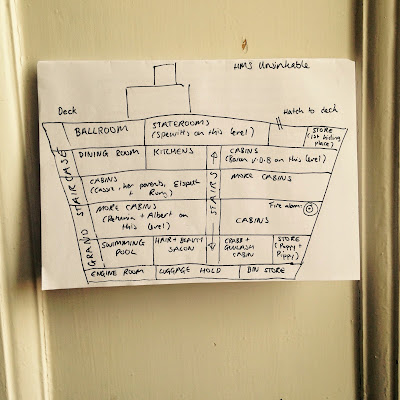 HMS Unsinkable
Deck
Hatch to deck
BALLROOM
STATEROOMS
(Spewitts on this level)
STORE
(1st hiding
place)
GRAND STAIRCASE
DINING ROOM
KITCHENS
STAIRS
CABINS
(Baron V.O.B on this level)
CABINS
(Cassie, her parents, Elspeth
+ Rumy)
MORE CABINS
MORE CABINS
(Petunia + Albert on
this level)
Fire alarm
CABINS
SWIMMING
POOL
HAIR + BEAUTY
SALON
CRABB +
GOULASH
CABIN
STORE
(Poppy +
Pippy)
ENGINE ROOM
LUGGAGE HOLD
BIN STORE